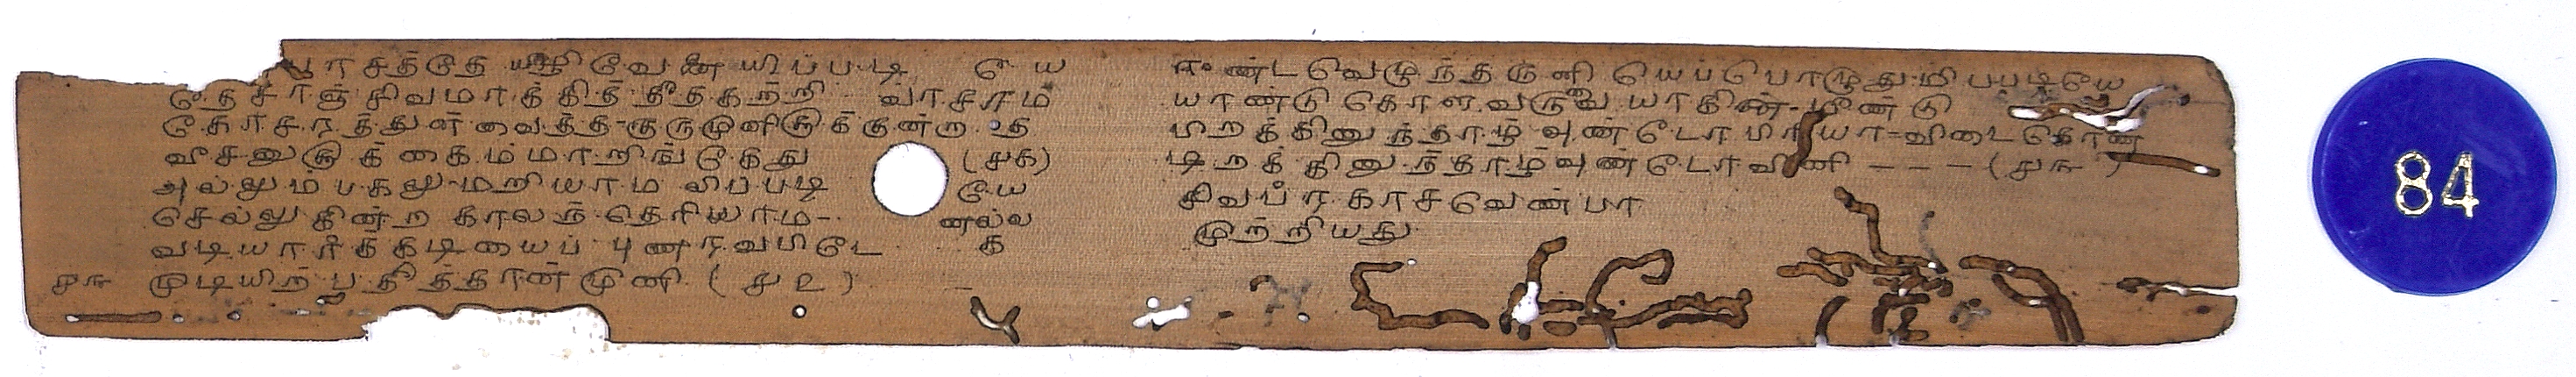 பாசத்தே யழிவேனை யிப்படி யே
தேசாஞ் சிவமாக்கித் தீத்தகற்றி வாசாம
கோசரத்துள் வைத்த குருமுனிக்குக்குன்ற த
வீசனுக்குக் கைம்மாறிங் கேது (சக)
அல்லும் பகலுமறியாம லிப்படி யே
செல்லுகின்ற காலந் தெரியாம னல்ல
வடியார்க் கடியையப் புணரவமிடே க
ருந முடியிற் பதித்தான் முனி (ச௨)
ஈண்ட வெழுந்தருளி யெப்பொழுதுமிப்படியே
யாண்டு கொள வருவை யாகின் மீண்டு
மிறக்கினுந்தாழ் வுண்டோ யா விடைகொண்
டிறக்கினுந்தாழ்வுண்டோவினி (சரு)
சிவப்ரகாசவெண்பா
முற்றியது
84